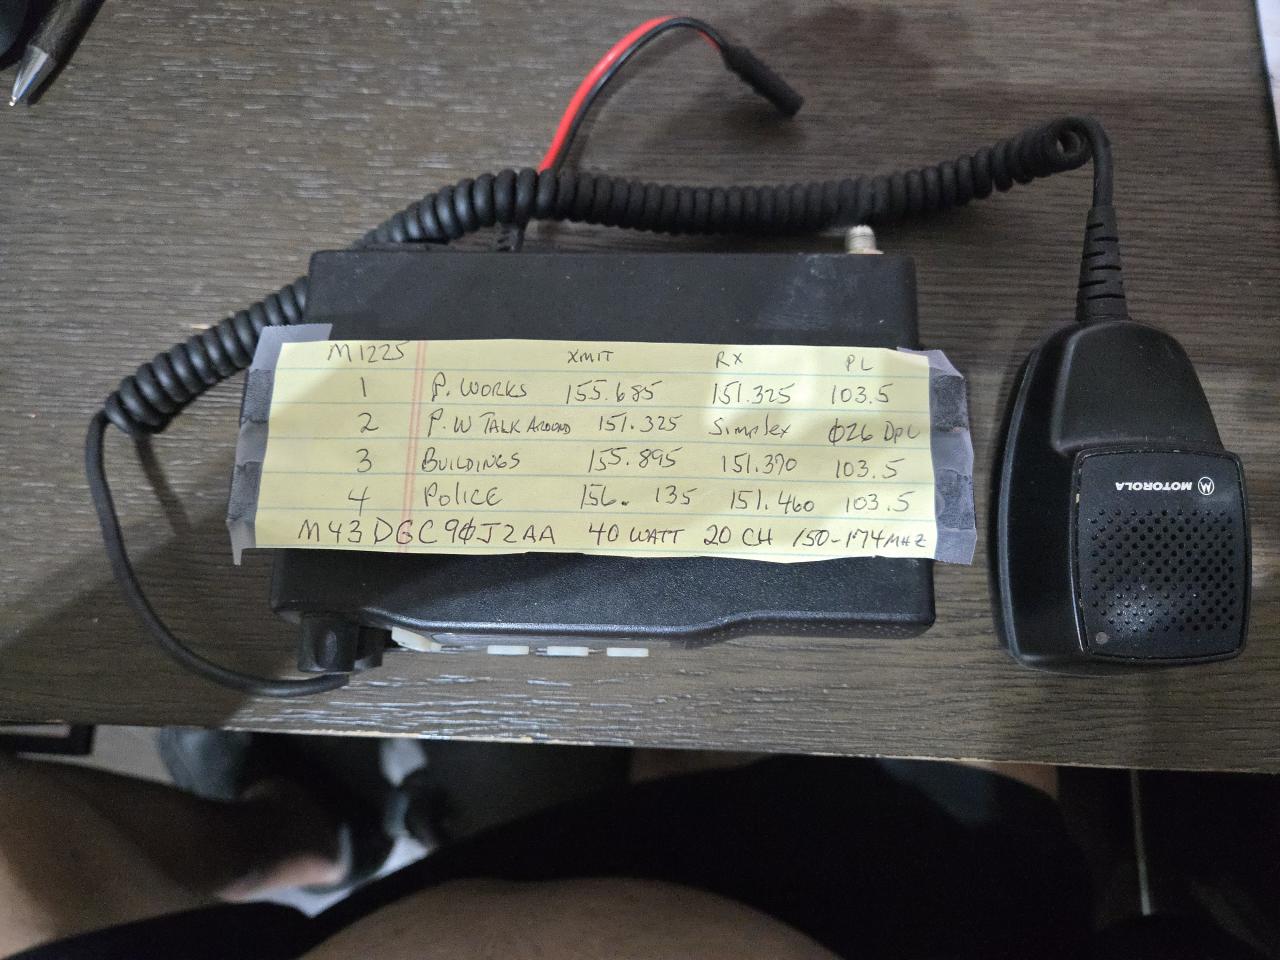 M1225 XMIT RX PL
1 P. WORKS 155.685 151.325 103.5
2 P.W TALK AROUND 151.325 Simplex Ø26 DPL
3 BUILDINGS 155.895 151.370 103.5
4 POLICE 156. 135 151.460 103.5
M43DGC9ØJ2AA 40 WATT 20 CH 150-174MHZ
MOTOROLA